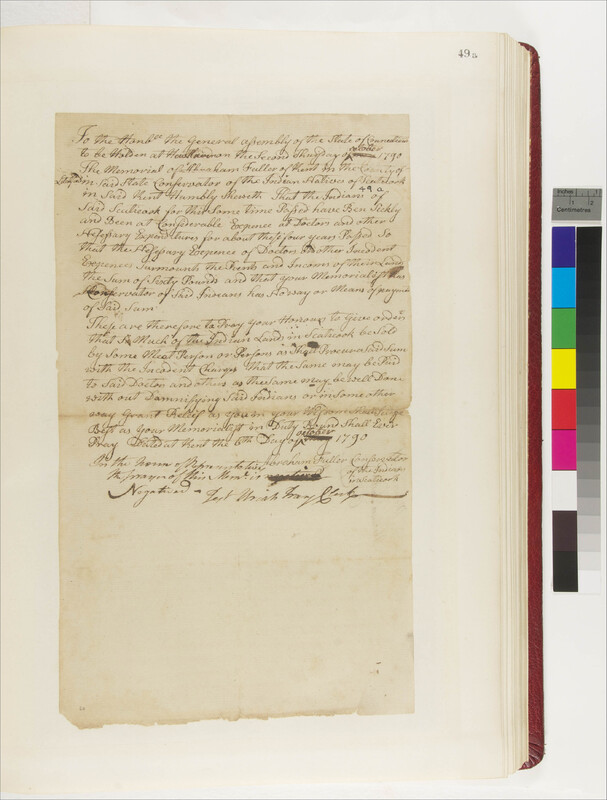 49a
To the Honble the General Assembly of the State of Connecticut
to be Holden at on the Second Thursday of october 1790
The Memorial of Abraham Fuller of Kent in the County of
Litchfield in Said State Conservator of the Indian Natives of Scatacook
in Said Kent Humbly sheweth That the Indians of
49a
Said Scatacook for the Some time Passed have Ben Sickly
and Been at Considerable Expence at Doctors and other
Nessessary Expenditures for about these four year Passed So
that the Nessessary Expence of Doctors & other Incident
Expences Surmounts the Rents and Incom of their Land
the Sum of Sixty Pounds and that your Memorialist as
Conservator of Said Indians has No way or Means of payment
of Said Sum
These are therefore to Pray your Honours to Give order
that So Much of the Indian Land in Scatacook be Sold
by Some Meet Person or Persons as Shall Procure Said Sum
with the Incedent Charges that the Same may be Paid
to Said Doctor and others as the Same may be well Don
with out Damnifying Said Indians or in Some other
way Grant Relief as you in your Wisdom Shall judge
Best as your Memorialist in Duty Bound Shall Ever
Pray Dated at Kent the 6th Day of october 1790
Abraham Fuller Conservator
of the Indians
in Scatacook
In the House of Representatives
the prayer of this Meml is
Negatived Test Uriah Tracy Clerk
Inches
1 2
Centimetres